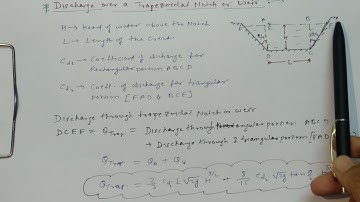 * Discharge over a Trapezoidal Notch or Weir :
H → Head of water above the Notch
L → Length of the Crest
Cd1 → Coefficient of discharge for
Rectangular portion ABCD
Cd2 → Coeff. of discharge for triangular
portion [FAD & BCE]
Discharge through trapezoidal Notch or weir
DCEF = QTrap = Discharge through rectangular portion ABCD
+ Discharge through 2 triangular portion [FAD
QTrap = QR + QV
QTrap = 2/3 Cd1 L √2g H^3/2 + 8/15 Cd2 √2g tan θ/2